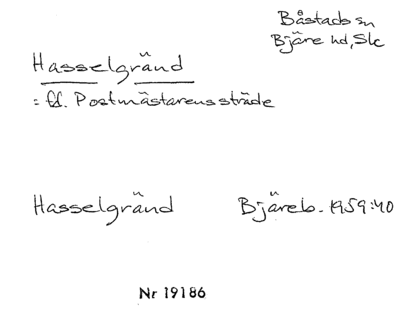 Båstads sn
Bjäre hd, Sk
Hasselgränd
= fd. Postmästarens sträde
Hasselgränd Bjäreb. 1959:40
Nr 19186